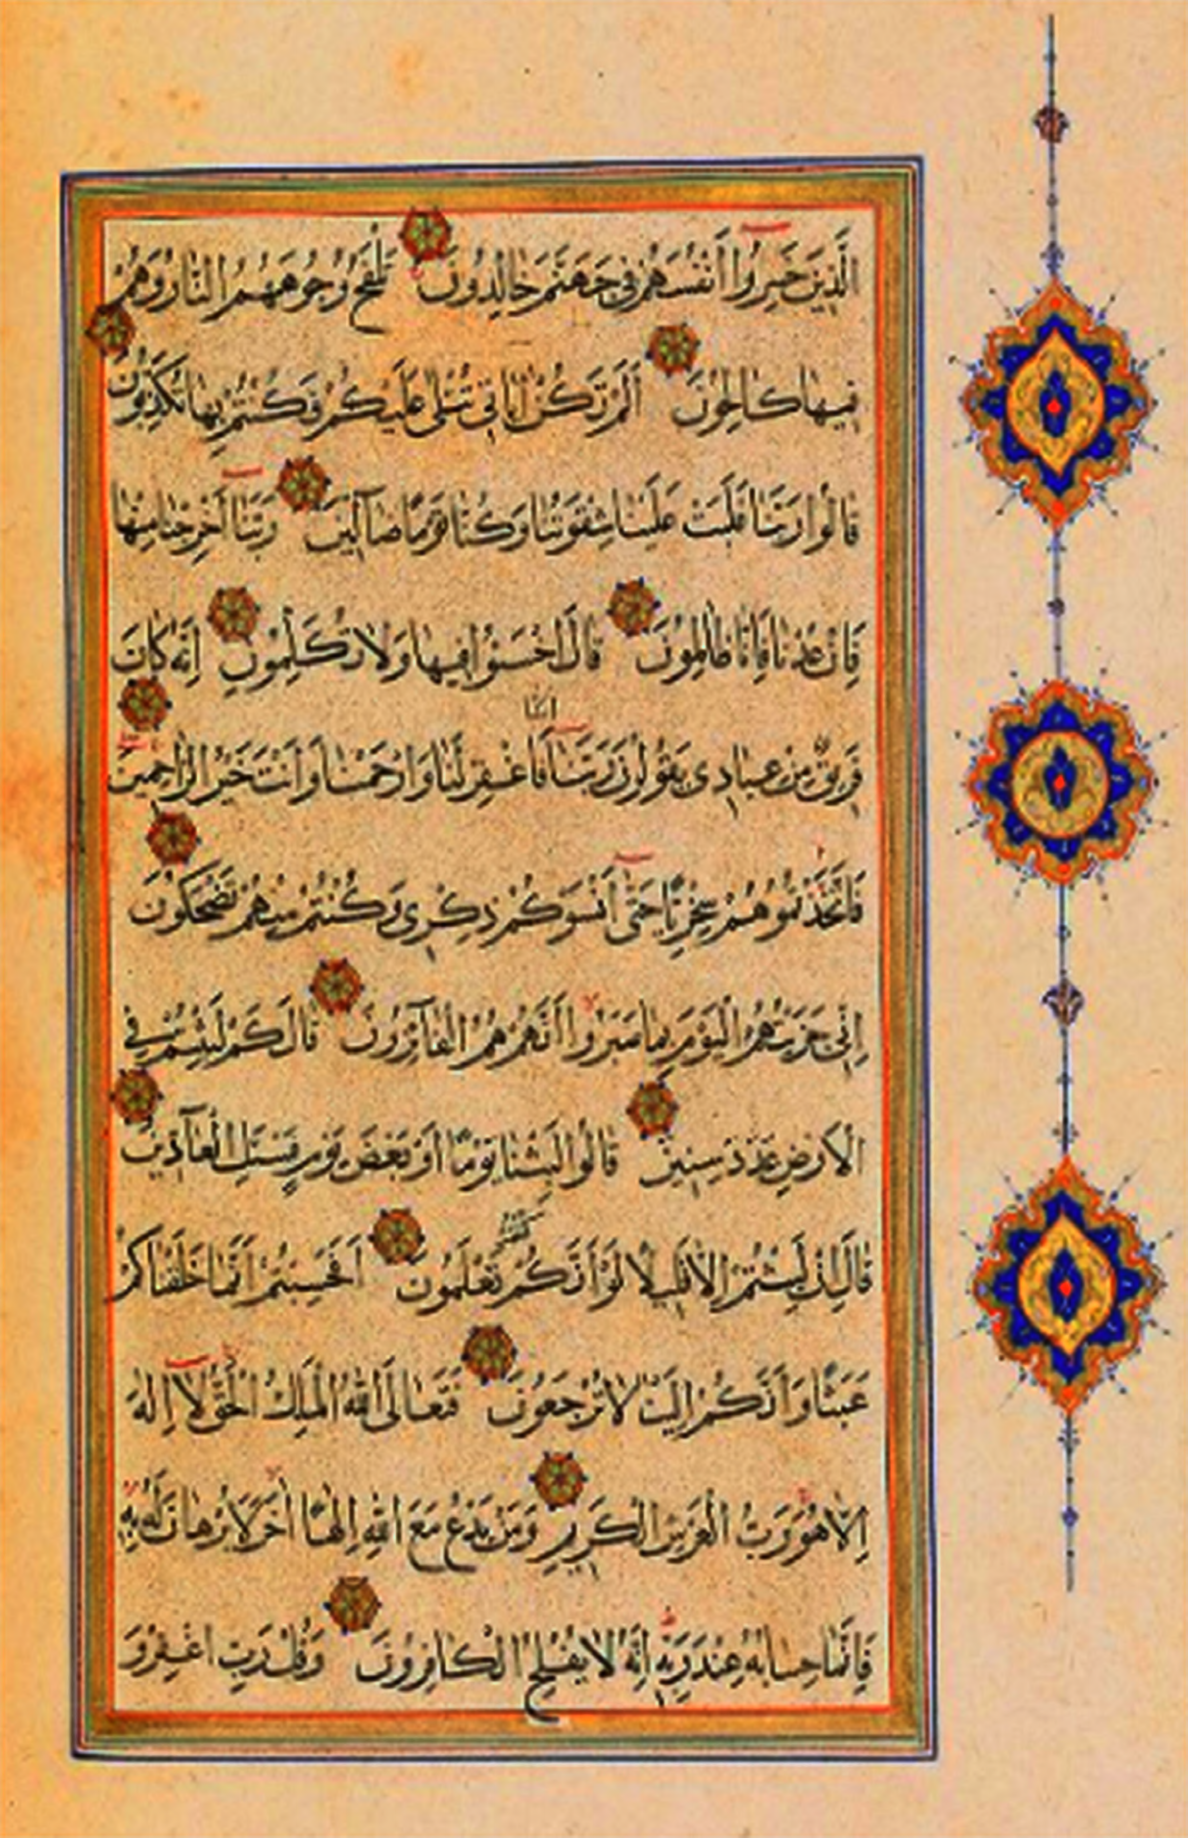 الَّذِينَ خَسِرُوا أَنْفُسَهُمْ فِي جَهَنَّمَ خَالِدُونَ تَلْفَحُ وُجُوهَهُمُ النَّارُ وَهُمْ
فِيهَا كَالِحُونَ أَلَمْ تَكُنْ اٰيَاتِي تُتْلٰى عَلَيْكُمْ فَكُنْتُمْ بِهَا تُكَذِّبُونَ
قَالُوا رَبَّنَا غَلَبَتْ عَلَيْنَا شِقْوَتُنَا وَكُنَّا قَوْمًا ضَآلِّينَ رَبَّنَا أَخْرِجْنَا مِنْهَا
فَاِنْ عُدْنَا فَاِنَّا ظَالِمُونَ قَالَ اخْسَئُوا فِيهَا وَلَا تُكَلِّمُونِ اِنَّهُ كَانَ
اٰمَنَّا
فَرِيقٌ مِنْ عِبَادِي يَقُولُونَ رَبَّنَا فَاغْفِرْ لَنَا وَارْحَمْنَا وَأَنْتَ خَيْرُ الرَّاحِمِينَ
فَاتَّخَذْتُمُوهُمْ سِخْرِيًّا حَتّٰى أَنْسَوْكُمْ ذِكْرِي وَكُنْتُمْ مِنْهُمْ تَضْحَكُونَ
اِنِّي جَزَيْتُهُمُ الْيَوْمَ بِمَا صَبَرُوا أَنَّهُمْ هُمُ الْفَآئِزُونَ قَالَ كَمْ لَبِثْتُمْ فِي
الْاَرْضِ عَدَدَ سِنِينَ قَالُوا لَبِثْنَا يَوْمًا أَوْ بَعْضَ يَوْمٍ فَسْئَلِ الْعَآدِّينَ
كُنْتُمْ
قَالَ اِنْ لَبِثْتُمْ اِلَّا قَلِيلًا لَوْ أَنَّكُمْ تَعْلَمُونَ اَفَحَسِبْتُمْ اَنَّمَا خَلَقْنَاكُمْ
عَبَثًا وَأَنَّكُمْ اِلَيْنَا لَا تُرْجَعُونَ فَتَعَالَى اللّٰهُ الْمَلِكُ الْحَقُّ لَا اِلٰهَ
اِلَّا هُوَ رَبُّ الْعَرْشِ الْكَرِيمِ وَمَنْ يَدْعُ مَعَ اللّٰهِ اِلٰهًا اٰخَرَ لَا بُرْهَانَ لَهُ بِهِ
فَاِنَّمَا حِسَابُهُ عِنْدَ رَبِّهِ اِنَّهُ لَا يُفْلِحُ الْكَافِرُونَ وَقُلْ رَبِّ اغْفِرْ وَ